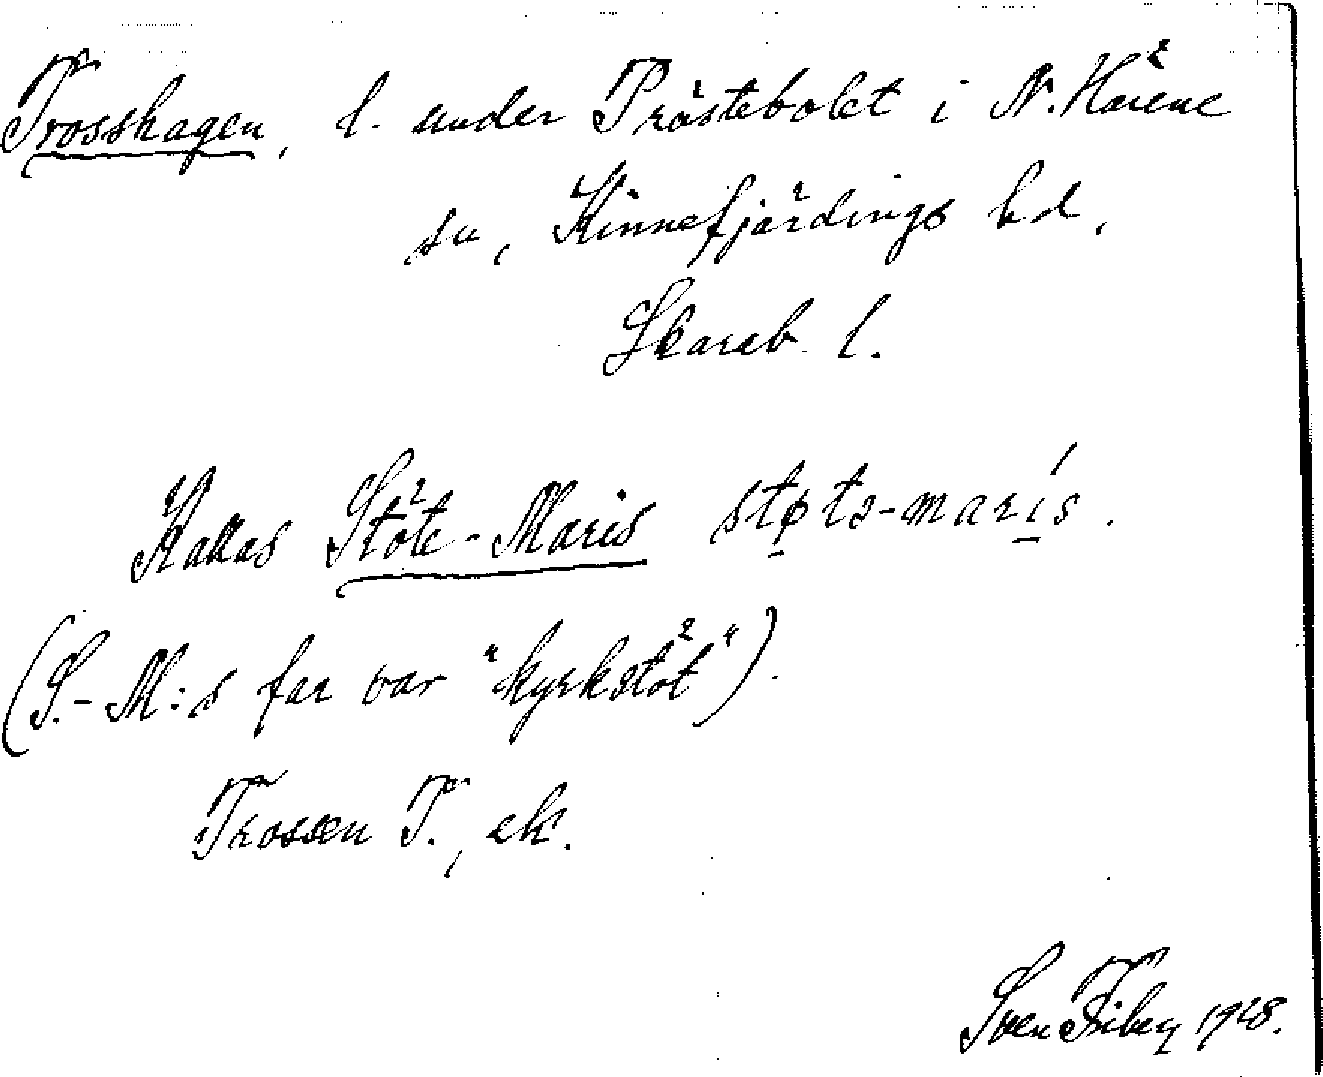 Trosshagen, l. under Prästebolet i N. Härene
sn, Kinnefjärdings hd,
Skarab. l.
Kallas Stöte-Maris støtə-marís.
(S.-M:s far var "kyrkstöt").
Trossen T., ek.
Sven Friberg 1928.